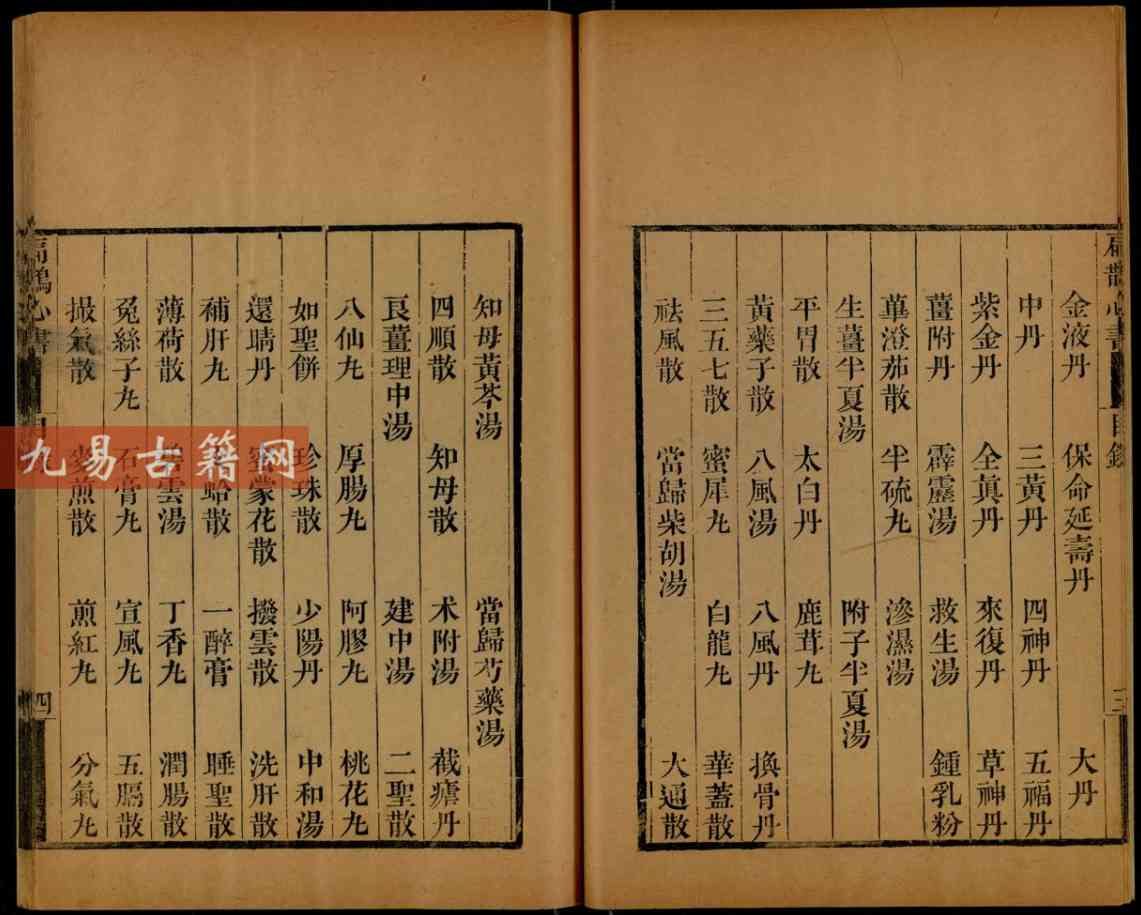 金液丹 保命延壽丹 大丹
中丹 三黃丹 四神丹 五福丹
紫金丹 全眞丹 來復丹 草神丹
薑附丹 霹靂湯 救生湯 鍾乳粉
蓽澄茄散 半硫丸 滲濕湯
生薑半夏湯 附子半夏湯
平胃散 太白丹 鹿茸丸
黃藥子散 八風湯 八風丹 換骨丹
三五七散 蜜犀丸 白龍丸 華蓋散
祛風散 當歸柴胡湯 大通散
知母黃芩湯 當歸芍藥湯
四順散 知母散 术附湯 截瘧丹
良薑理中湯 建中湯 二聖散
八仙丸 厚腸丸 阿膠丸 桃花丸
如聖餅 珍珠散 少陽丹 中和湯
還睛丹 密蒙花散 撥雲散 洗肝散
補肝丸 蛤散 一醉膏 睡聖散
薄荷散 雲湯 丁香丸 潤腸散
兔絲子丸 石膏丸 宣風丸 五膈散
撮氣散 麥煎散 煎紅丸 分氣丸
扁鵲心書 目錄 三
扁鵲心書 四
九易古籍网